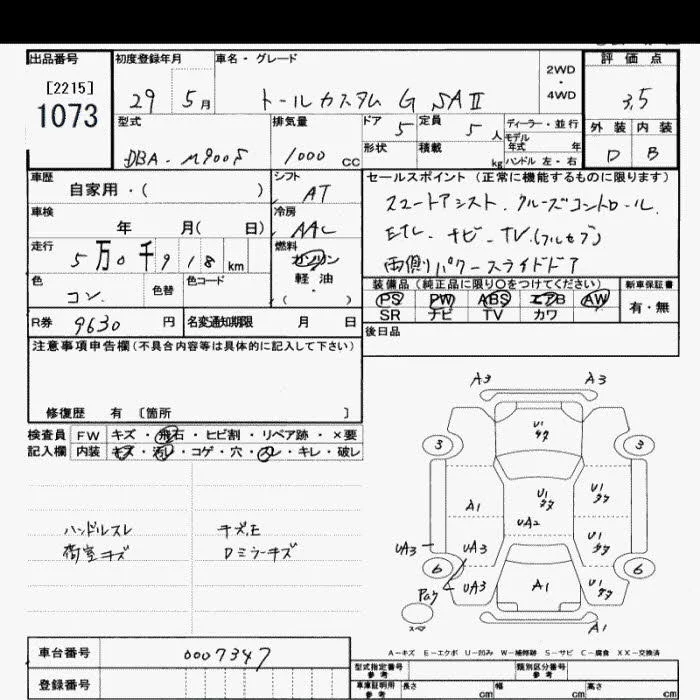 出品番号 初度登録年月 車名・グレード 評価点
[2215]
1073
29 5月 トールカスタム G SAII 2WD・4WD 3.5
型式 排気量 ドア 定員 ディーラー・並行 外装 内装
DBA-M900S 1000cc 5 5人 モデル年式 年 D B
形状 積載 kg ハンドル 左・右
車歴 シフト セールスポイント (正常に機能するものに限ります)
自家用・( ) AT スマートアシスト. クルーズコントロール.
車検 冷房
年 月( 日) AAC ETC. ナビ. TV(フルセグ)
走行 燃料
5万0千918km ガソリン 両側パワースライドドア
色 色替 色コード 軽油 装備品 (純正品に限り○をつけてください) 新車保証書
コン. (・) PS PW ABS エアB AW 有・無
SR ナビ TV カワ
R券 9630円 名変通知期限 月 日 後日品
注意事項申告欄(不具合内容等は具体的に記入して下さい)
修復歴 有 [箇所 ]
検査員 FW キズ・飛石・ヒビ割・リペア跡・×要
記入欄 内装 キズ・汚レ・コゲ・穴・スレ・キレ・破レ
ハンドルスレ キズ,E
荷室キズ Dミラーキズ
A3 A3
U1
3 3
A1 U1 U1
UA2
UA3 UA3 U1
6 6
UA3 A1 U1
スペア
A1
A-キズ E-エクボ U-凹み W-補修跡 S-サビ C-腐食 XX-交換済
車台番号 0007347
型式指定番号 参考 類別区分番号 参考
登録番号
車庫証明用 参考 長さ cm 幅 cm 高さ cm